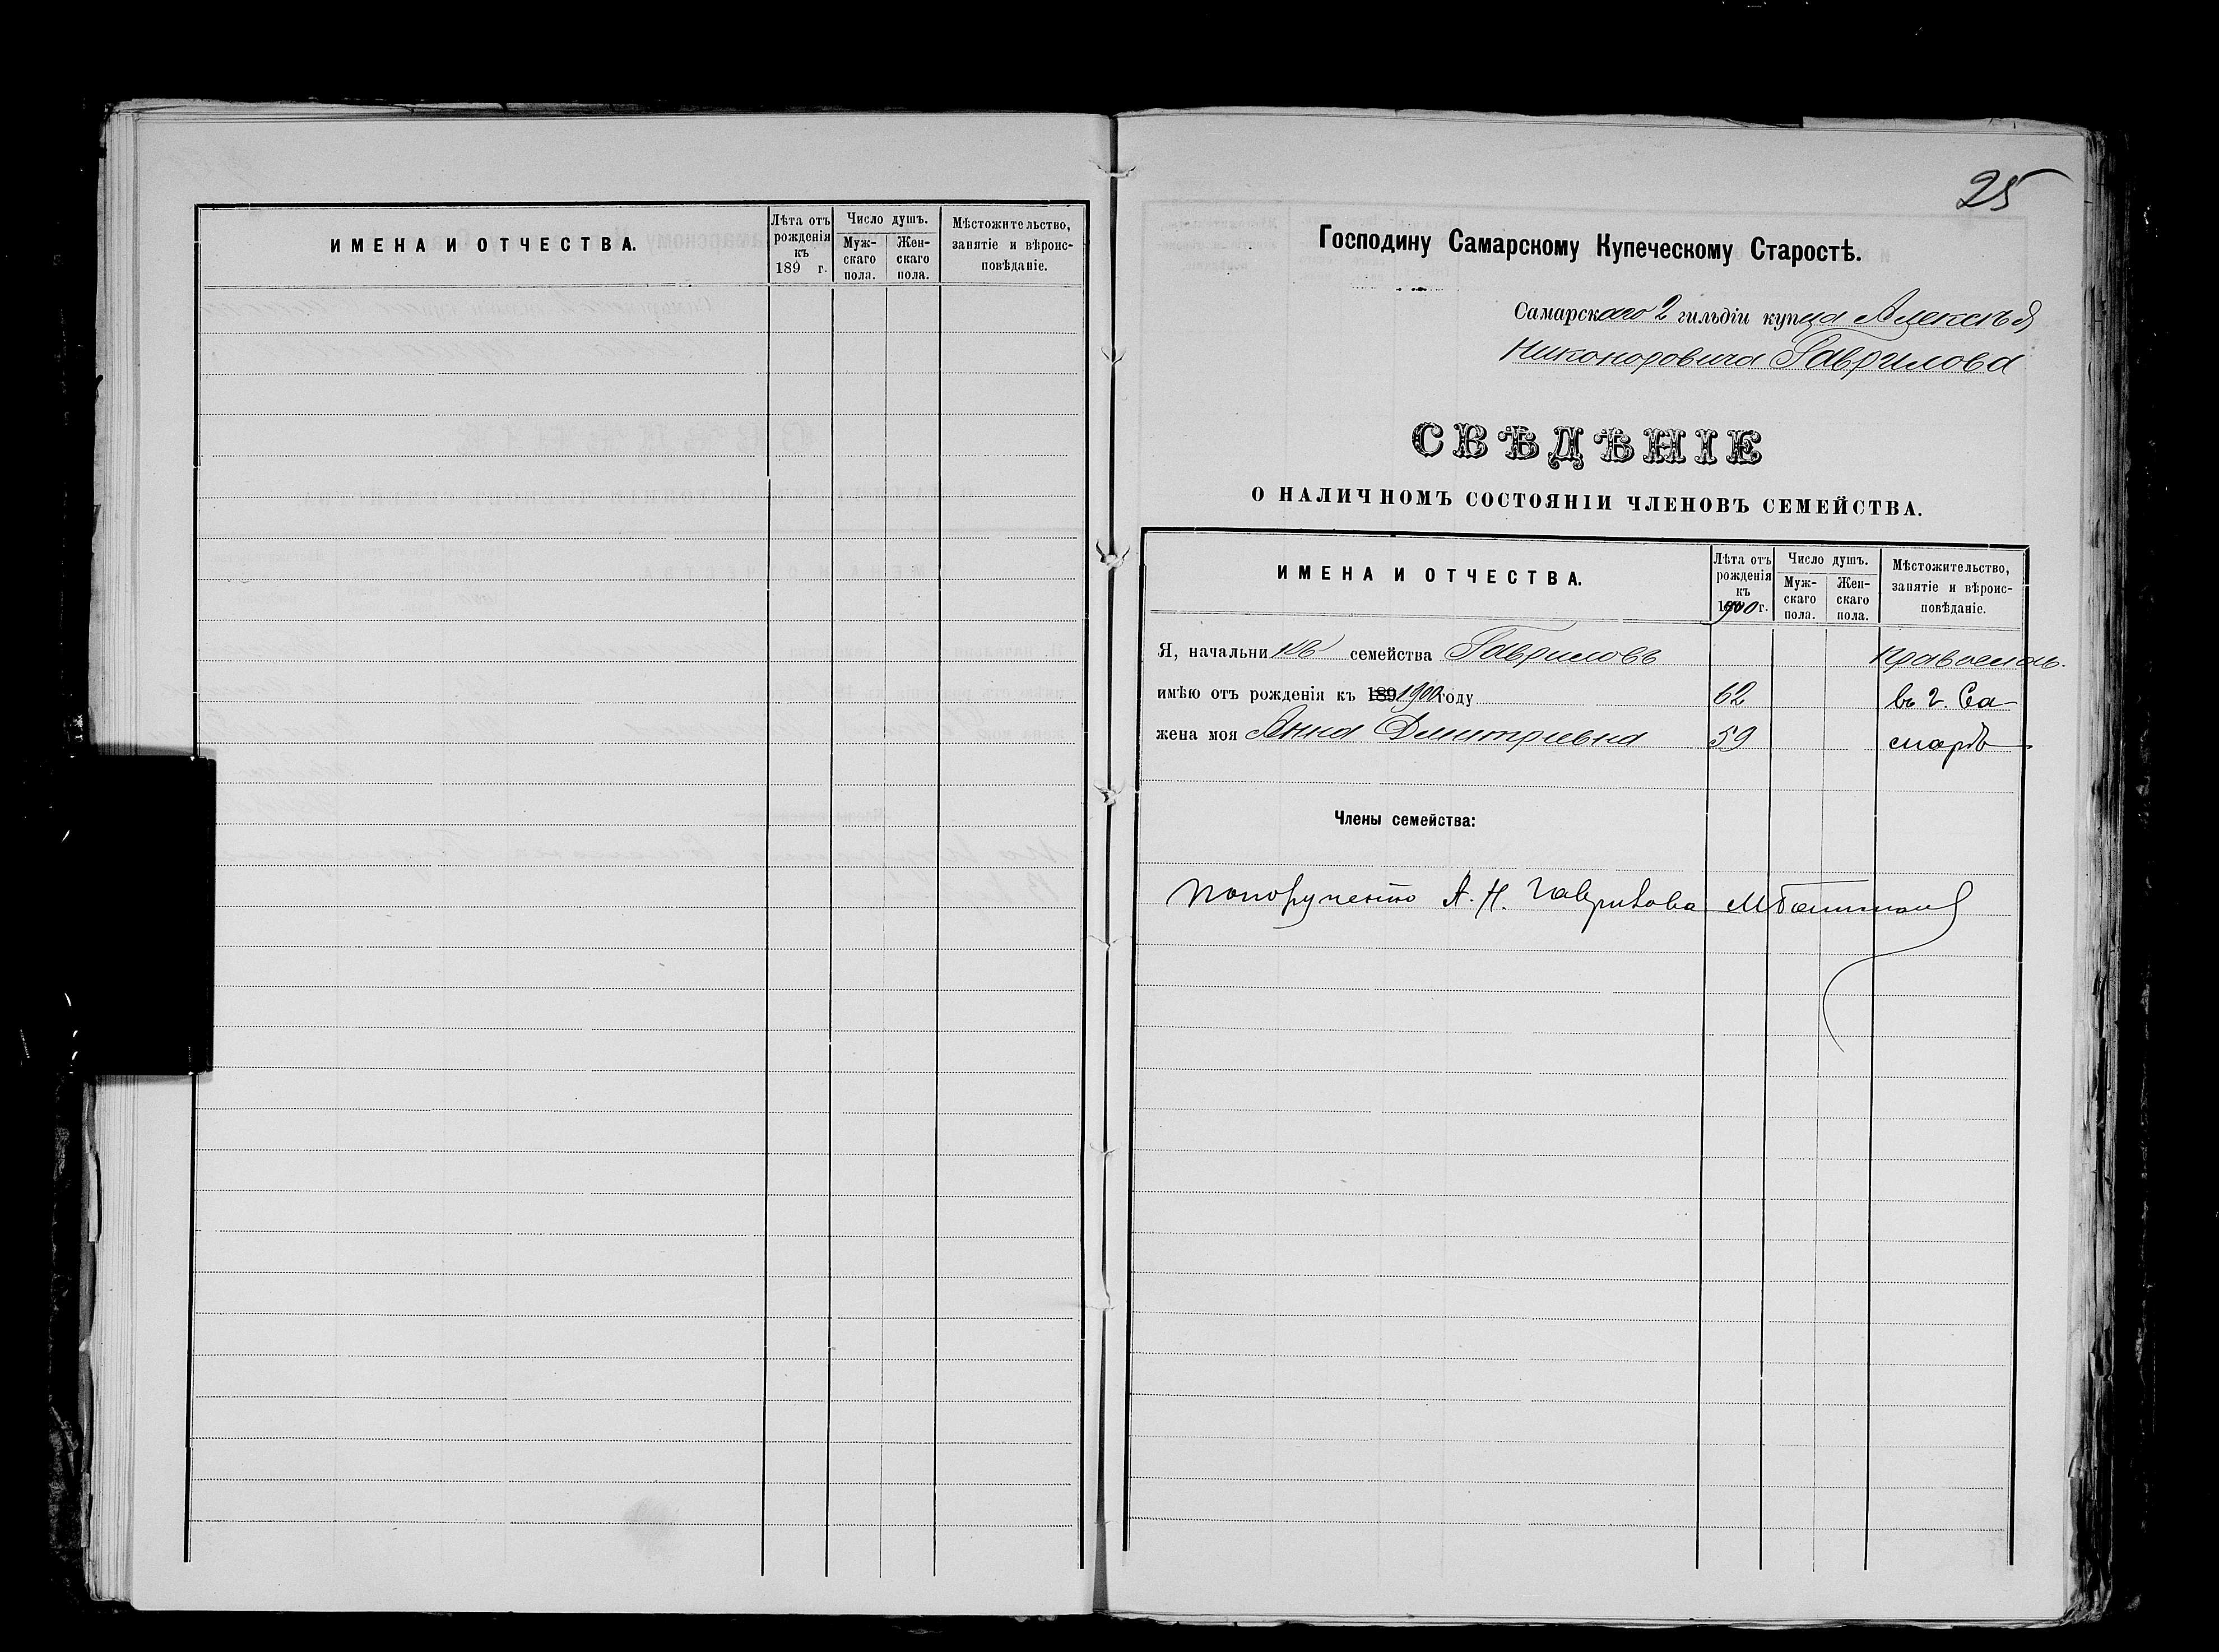 ИМЕНА И ОТЧЕСТВА.
Лѣта отъ рожденія къ 189 г.
Число душъ.
Мужскаго пола.
Женскаго пола.
Мѣстожительство, занятіе и вѣроисповѣданіе.
25
Господину Самарскому Купеческому Старостѣ.
Самарскаго 2 гильдіи купца Алексѣя
Никоноровича Гаврилова
СВѢДѢНІЕ
О НАЛИЧНОМЪ СОСТОЯНІИ ЧЛЕНОВЪ СЕМЕЙСТВА.
ИМЕНА И ОТЧЕСТВА.
Лѣта отъ рожденія къ 1900 г.
Число душъ.
Мужскаго пола.
Женскаго пола.
Мѣстожительство, занятіе и вѣроисповѣданіе.
Я, начальникъ семейства Гавриловъ
имѣю отъ рожденія къ 189 1900 году 62 въ г. Са-
жена моя Анна Дмитріевна 59 марѣ
Члены семейства:
По порученію А. Н. Гаврилова